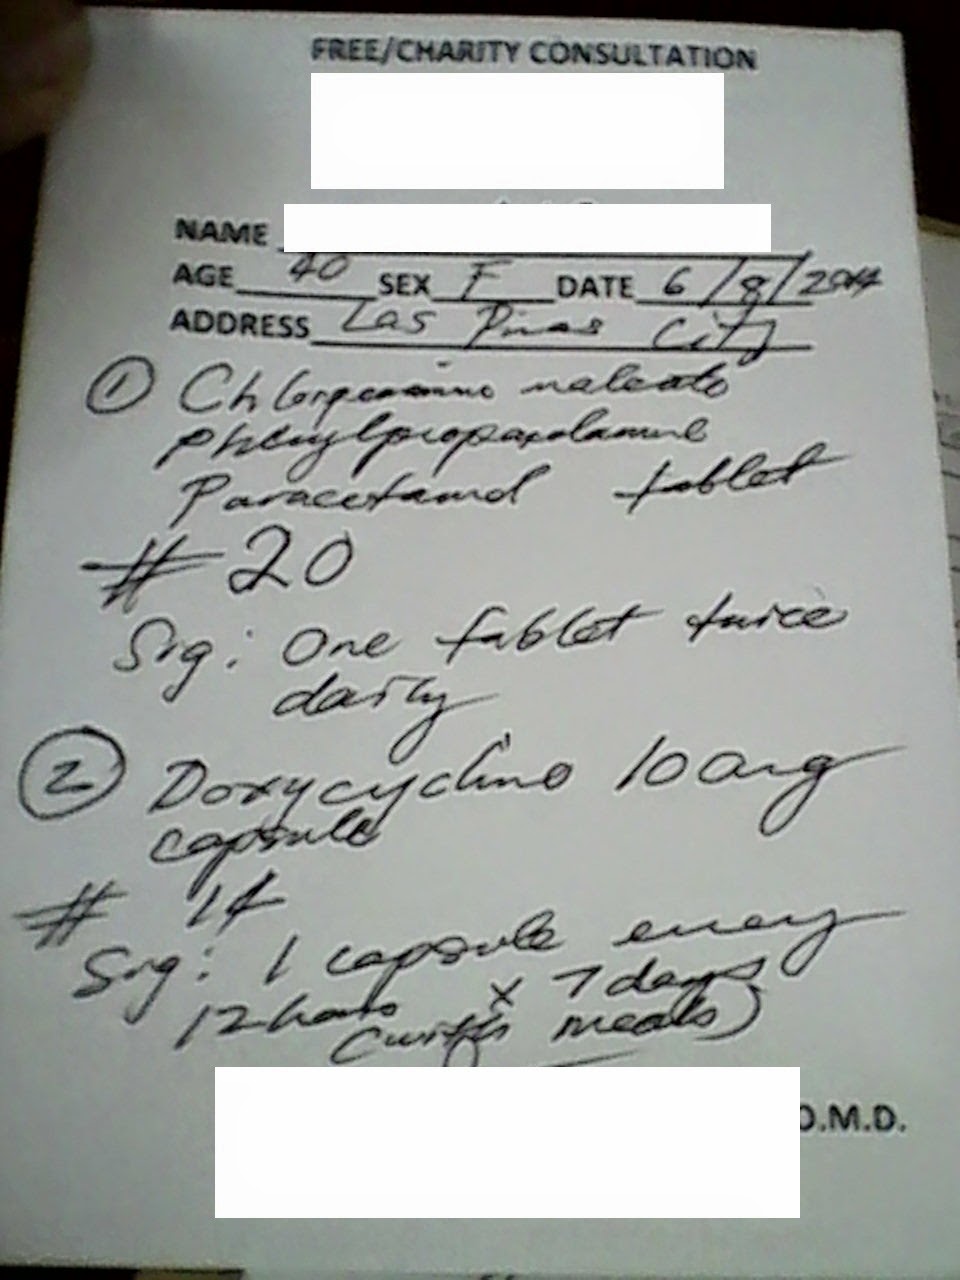 FREE/CHARITY CONSULTATION
NAME
AGE 40 SEX F DATE 6/8/2014
ADDRESS Las Pinas City
① maleate
phenylpropanolamine
Paracetamol tablet
# 20
Sig: One tablet twice
daily
② Doxycycline 100mg
capsule
# 14
Sig: 1 capsule every
12 hours x 7 days
(with meals)
O.M.D.